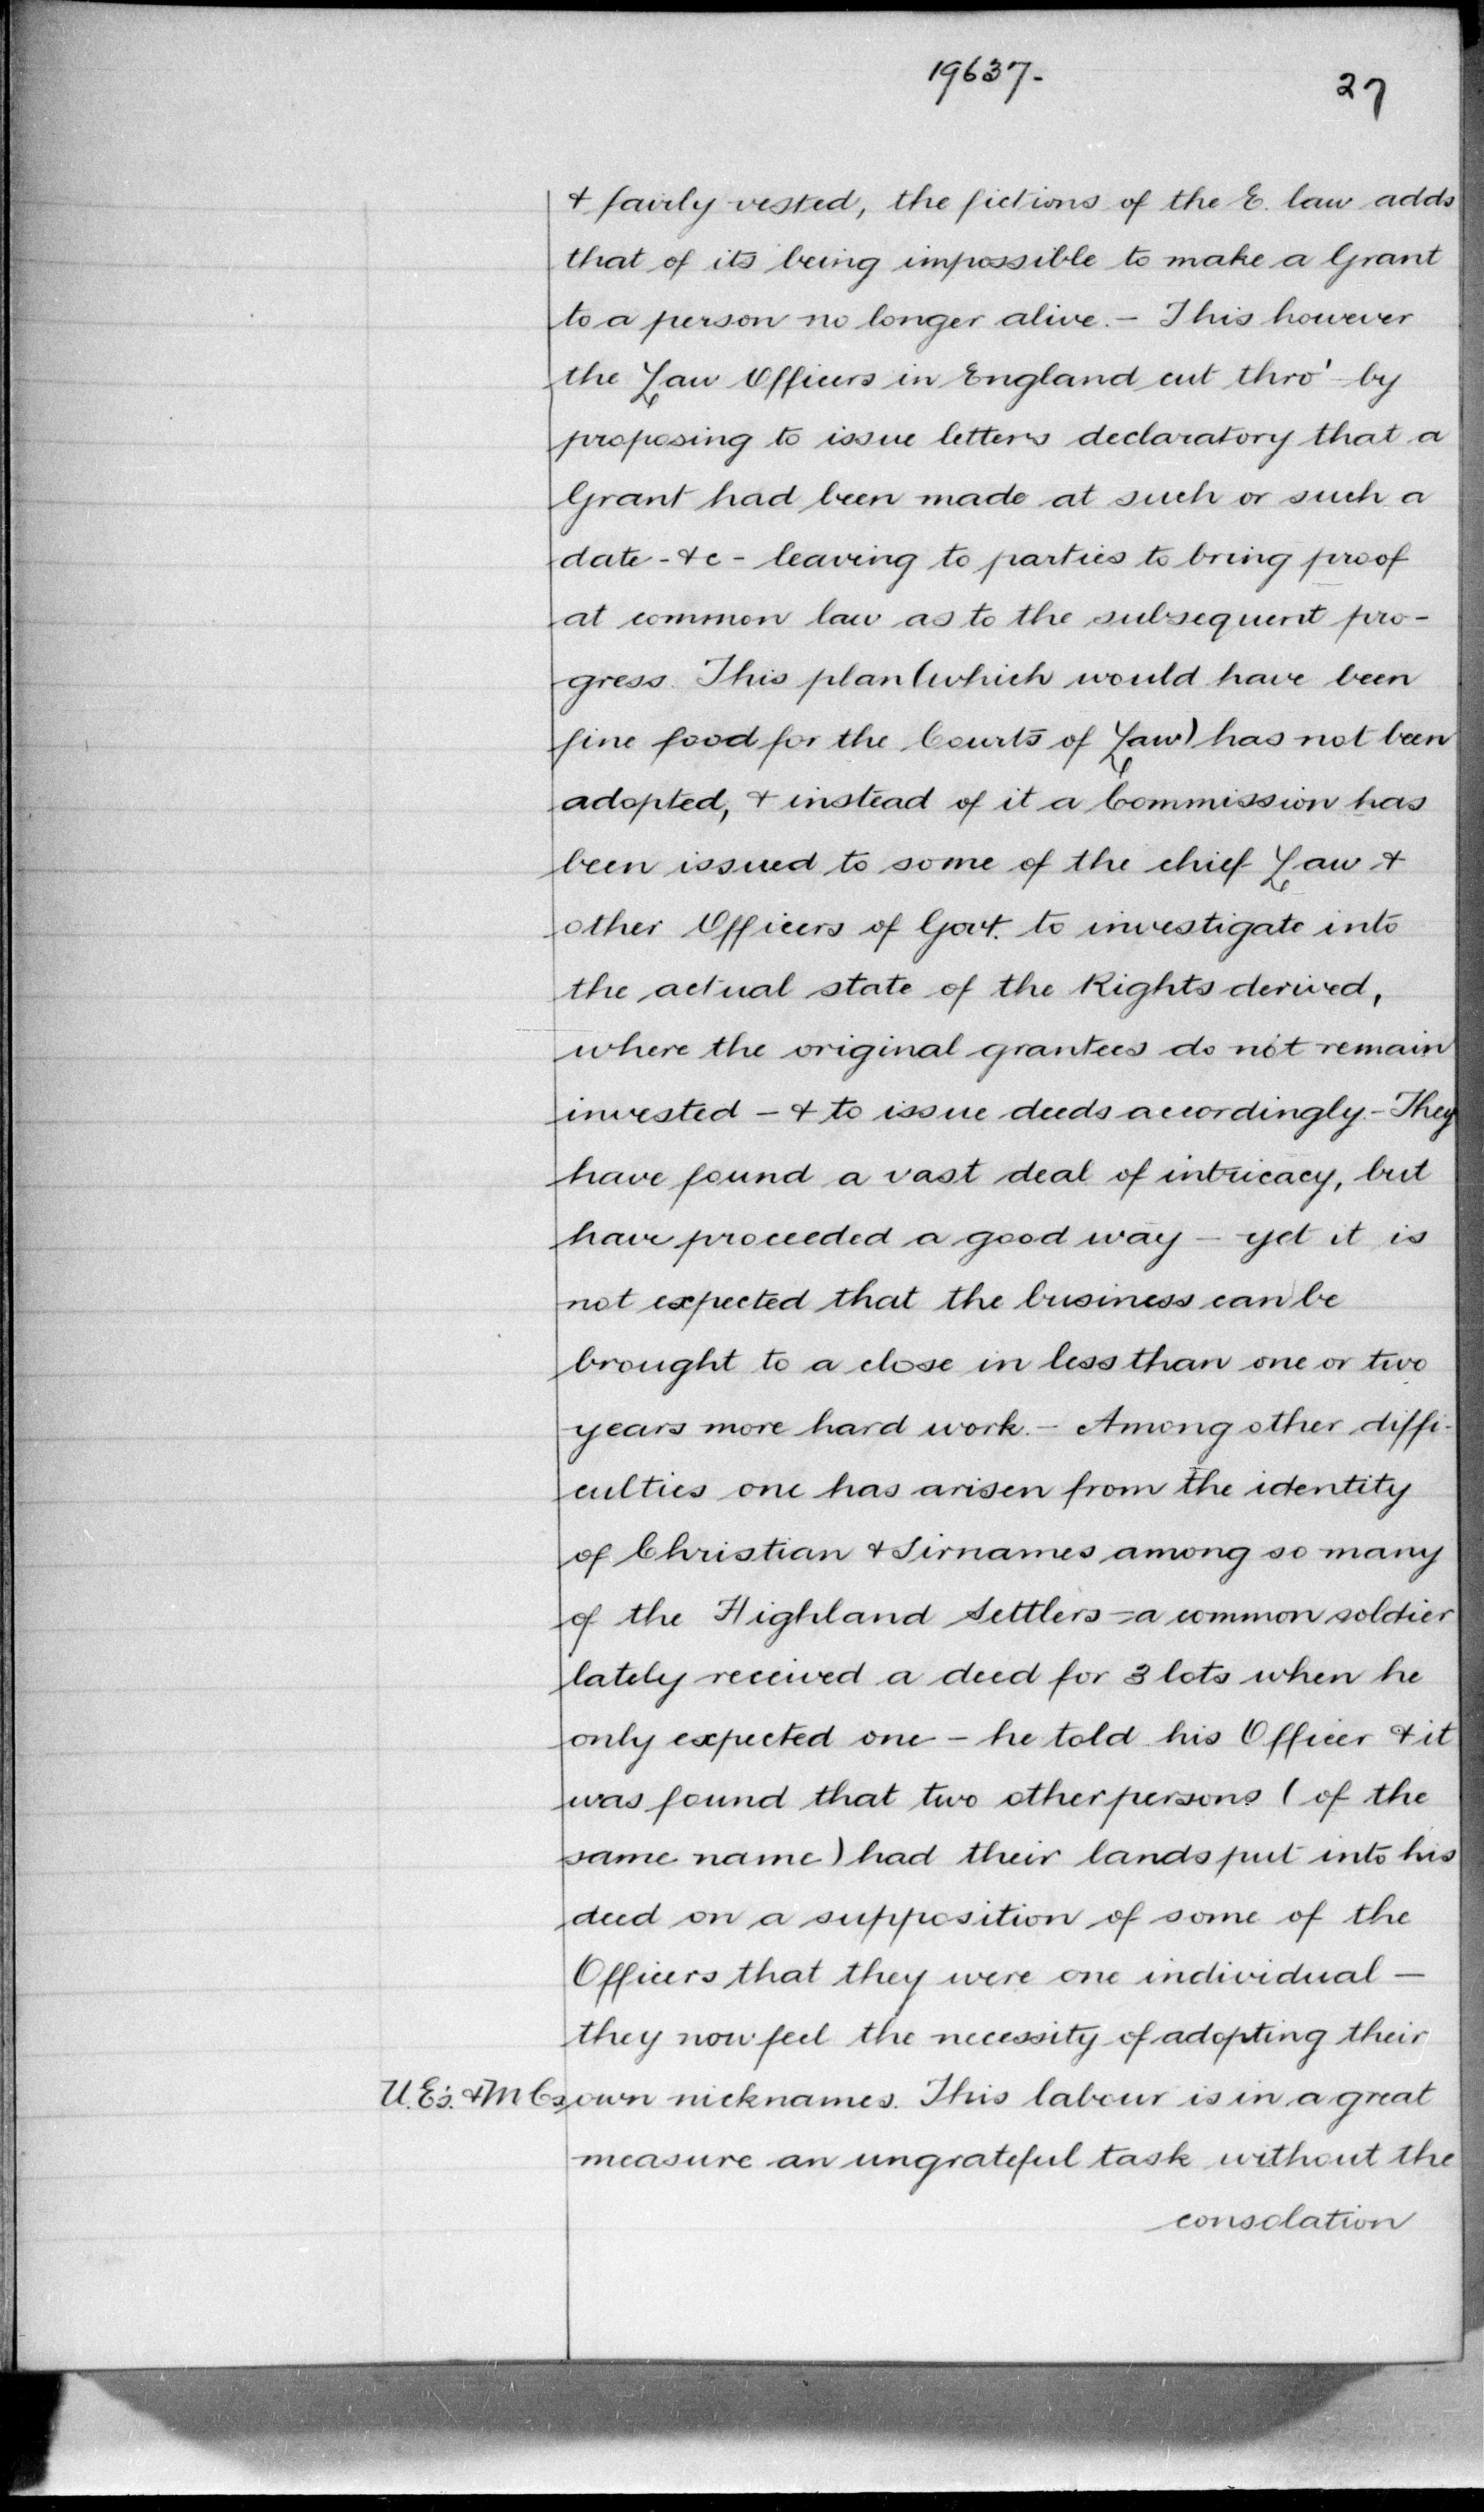 19637-
27
& fairly vested, the fictions of the E. law adds
that of its being impossible to make a Grant
to a person no longer alive. - This however
the Law Officers in England cut thro' by
proposing to issue letters declaratory that a
Grant had been made at such or such a
date - &c - leaving to parties to bring proof
at common law as to the subsequent pro-
gress. This plan (which would have been
fine food for the Courts of Law) has not been
adopted, & instead of it a Commission has
been issued to some of the chief Law &
other Officers of Govt. to investigate into
the actual state of the Rights derived,
where the original grantees do not remain
invested - & to issue deeds accordingly. - They
have found a vast deal of intricacy, but
have proceeded a good way - yet it is
not expected that the business can be
brought to a close in less than one or two
years more hard work. - Among other diffi-
culties one has arisen from the identity
of Christian & Sirnames among so many
of the Highland Settlers = a common soldier
lately received a deed for 3 lots when he
only expected one - he told his Officer & it
was found that two other persons (of the
same name) had their lands put into his
deed on a supposition of some of the
Officers that they were one individual -
they now feel the necessity of adopting their
U.E's. & M Cs own nicknames. This labour is in a great
measure an ungrateful task without the
consolation